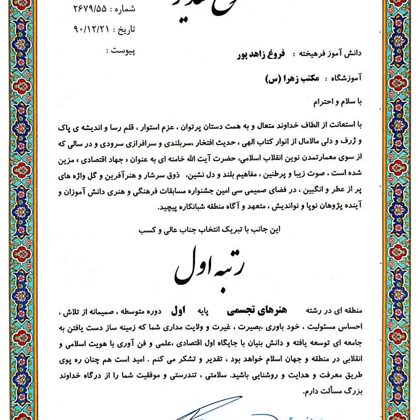 شماره : ۲۶۷۹/۵۵
تاریخ : ۹۰/۱۲/۲۱
پیوست :
دانش آموز فرهیخته : فروغ زاهدپور
آموزشگاه : مکتب زهرا (س)
با سلام و احترام
با استعانت از الطاف خداوند متعال و به همت دستان پرتوان ، عزم استوار ، قلم رسا و اندیشه ی پاک
و ژرف و دلی مالامال از انوار کتاب الهی ، حدیث افتخار ،سربلندی و سرافرازی سرودی و در سالی که
از سوی معمارتمدن نوین انقلاب اسلامی، حضرت آیت الله خامنه ای به عنوان ؛ جهاد اقتصادی ، مزین
شده است ، صوت زیبا و پرطنین ، مفاهیم بلند و دل نشین، ذوق سرشار و هنرآفرین و گل واژه های
پر از عطر و انگبین ، در فضای صمیمی سی امین جشنواره مسابقات فرهنگی و هنری دانش آموزان و
آینده پژوهان نوپا و نواندیش ، متعهد و آگاه منطقه شبانکاره پیچید.
این جانب با تبریک انتخاب جناب عالی و کسب
رتبه اول
منطقه ای در رشته هنرهای تجسمی پایه اول دوره متوسطه ، صمیمانه از تلاش ،
احساس مسئولیت ، خود باوری ،بصیرت ، غیرت و ولایت مداری شما که زمینه ساز دست یافتن به
جامعه ای توسعه یافته و دانش بنیان با جایگاه اول اقتصادی ،علمی و فن آوری با هویت اسلامی و
انقلابی در منطقه و جهان اسلام خواهد بود ، تقدیر و تشکر می کنم . امید است هم چنان ره پوی
طریق معرفت و هدایت و روشنایی باشید. سلامتی ، تندرستی و موفقیت شما را از درگاه خداوند
بزرگ مسألت دارم.